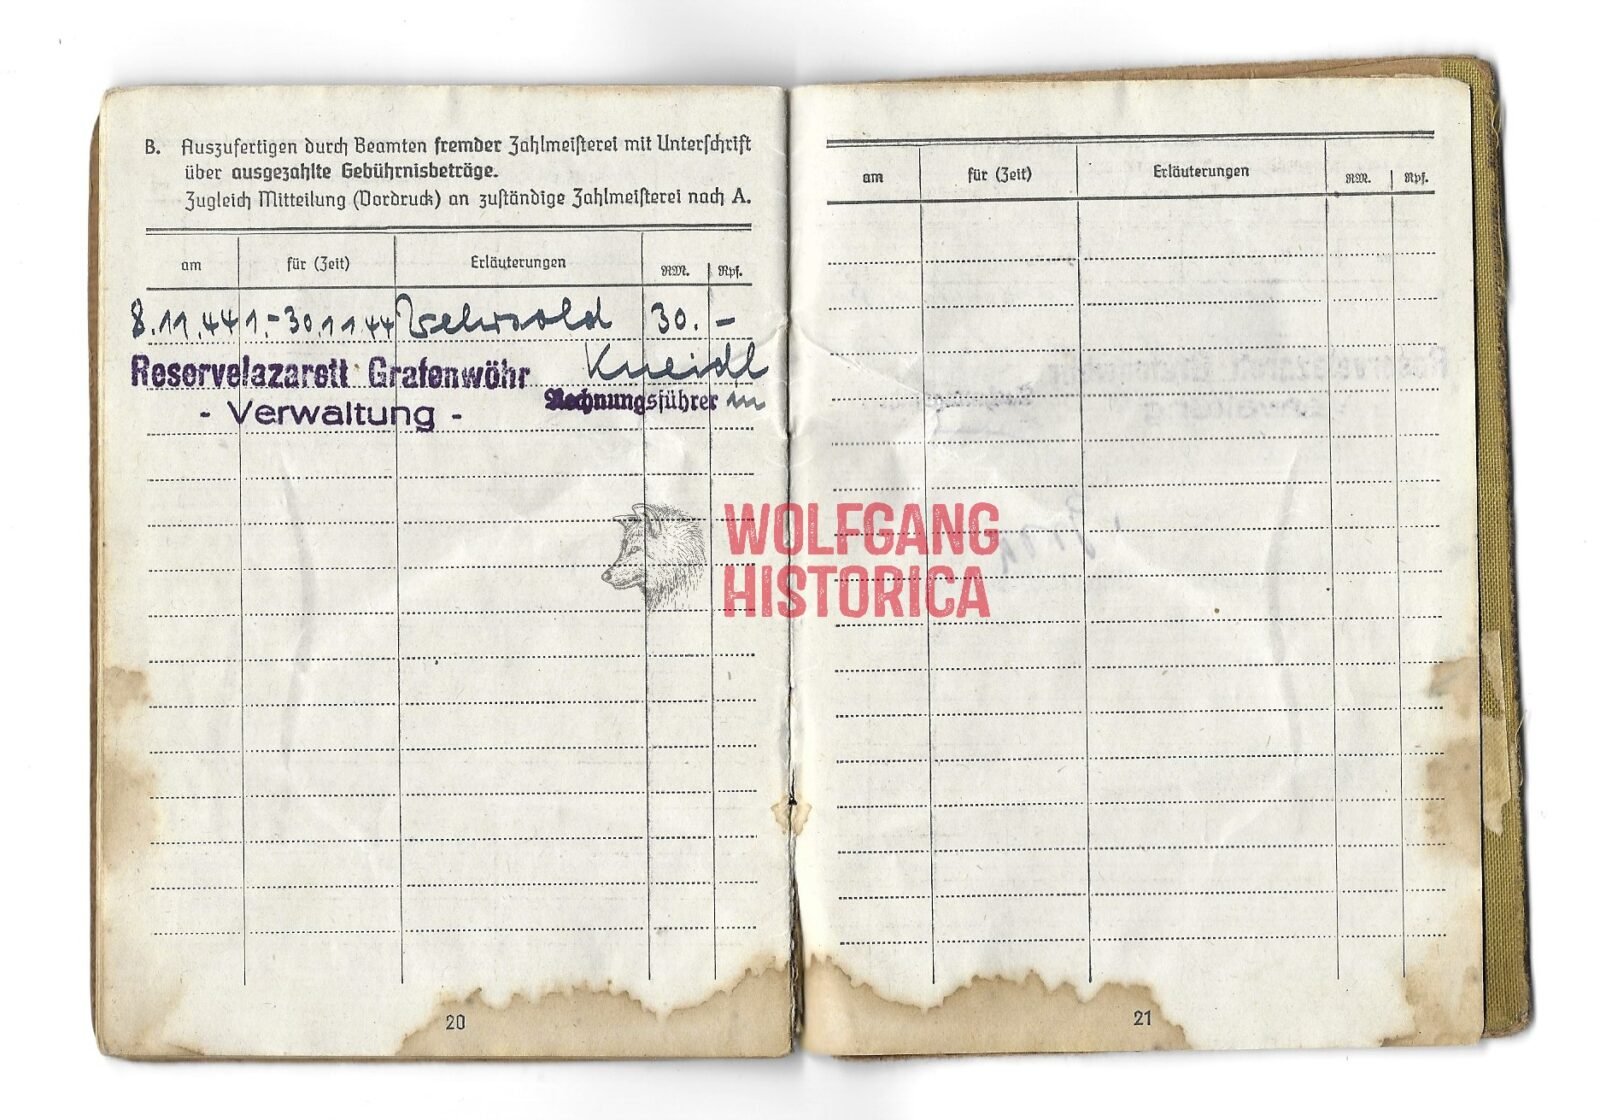 B. Auszufertigen durch Beamten fremder Zahlmeisterei mit Unterschrift
über ausgezahlte Gebührnisbeträge.
Zugleich Mitteilung (Vordruck) an zuständige Zahlmeisterei nach A.
am für (Zeit) Erläuterungen RM. Rpf.
8.11.44 1.-30.11.44 Wehrsold 30. –
Kneidl
Reservelazarett Grafenwöhr
Rechnungsführer in
- Verwaltung -
20
am für (Zeit) Erläuterungen RM. Rpf.
21
WOLFGANG
HISTORICA